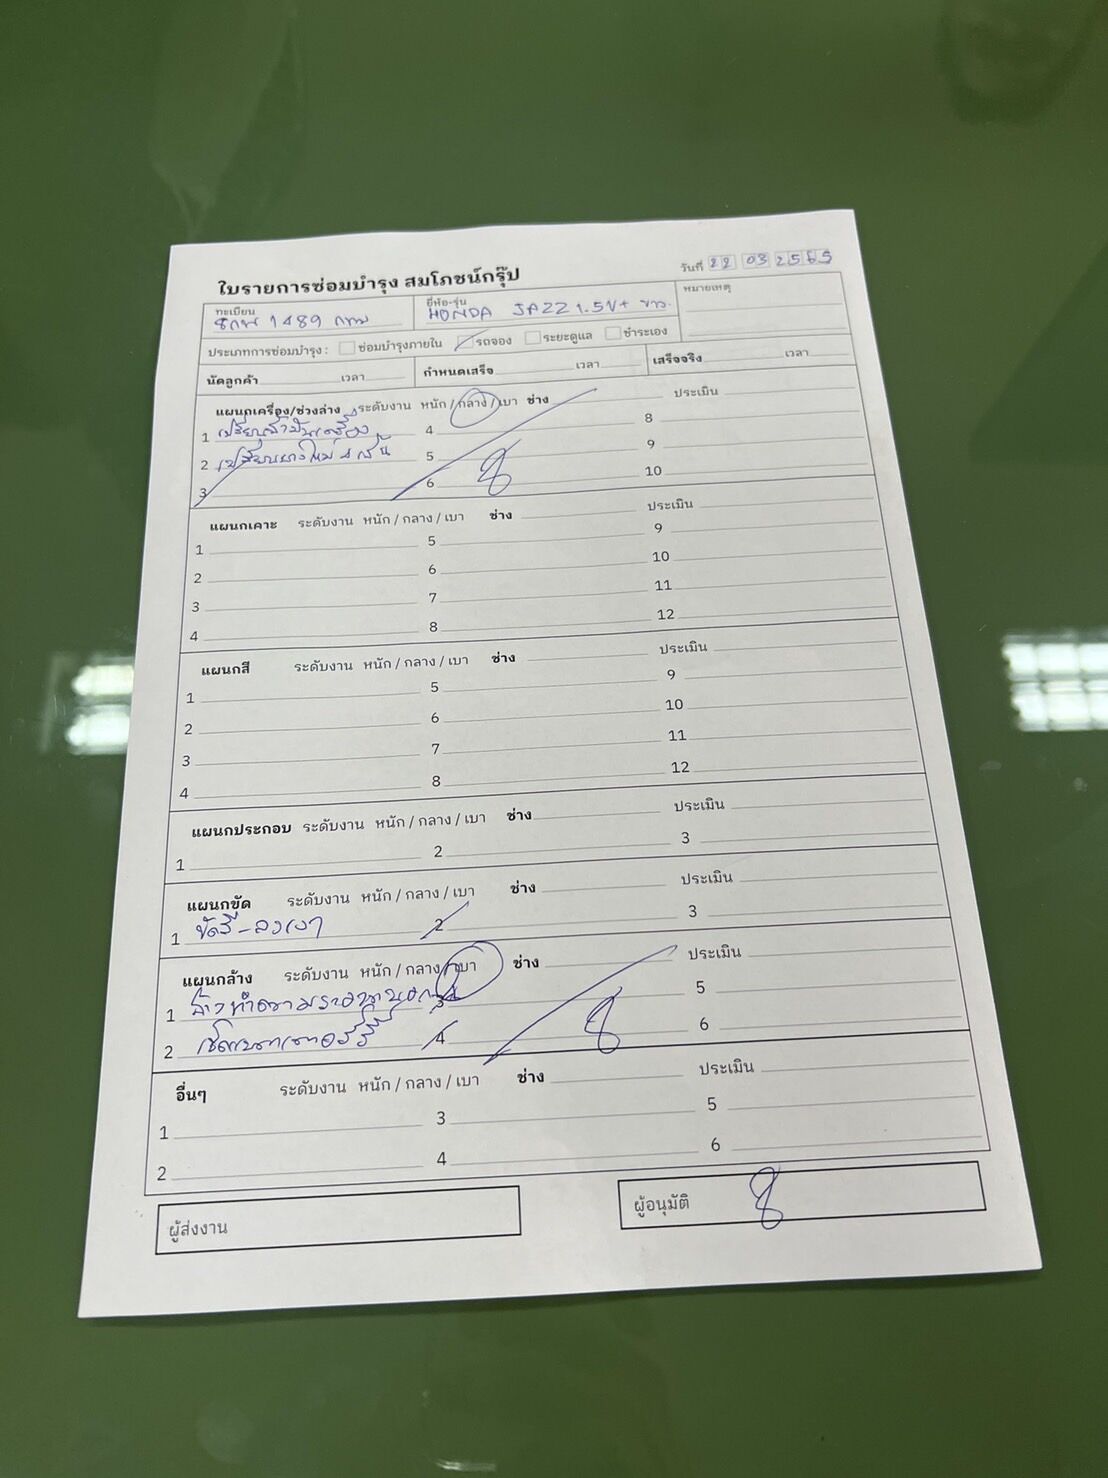 ใบรายการซ่อมบำรุง สมโภชน์กรุ๊ป
วันที่ 22 03 2565
ทะเบียน
8กฬ 1489 กทม
ยี่ห้อ-รุ่น
HONDA JAZZ 1.5V+ ขาว.
หมายเหตุ
ประเภทการซ่อมบำรุง : ซ่อมบำรุงภายใน รถจอง ระยะดูแล ชำระเอง
นัดลูกค้า เวลา กำหนดเสร็จ เวลา เสร็จจริง เวลา
แผนกเครื่อง/ช่วงล่าง ระดับงาน หนัก / กลาง / เบา ช่าง ประเมิน
1 เปลี่ยนน้ำมันเครื่อง 4 8
2 เปลี่ยนยางใหม่ 4 เส้น 5 9
3 6 10
แผนกเคาะ ระดับงาน หนัก / กลาง / เบา ช่าง ประเมิน
1 5 9
2 6 10
3 7 11
4 8 12
แผนกสี ระดับงาน หนัก / กลาง / เบา ช่าง ประเมิน
1 5 9
2 6 10
3 7 11
4 8 12
แผนกประกอบ ระดับงาน หนัก / กลาง / เบา ช่าง ประเมิน
1 2 3
แผนกขัด ระดับงาน หนัก / กลาง / เบา ช่าง ประเมิน
1 ขัดสี - ลงเงา 2 3
แผนกล้าง ระดับงาน หนัก / กลาง / เบา ช่าง ประเมิน
1 ล้างทำความสะอาด 3 5
2 เช็คแบตเตอรี่ 4 6
อื่นๆ ระดับงาน หนัก / กลาง / เบา ช่าง ประเมิน
1 3 5
2 4 6
ผู้ส่งงาน
ผู้อนุมัติ